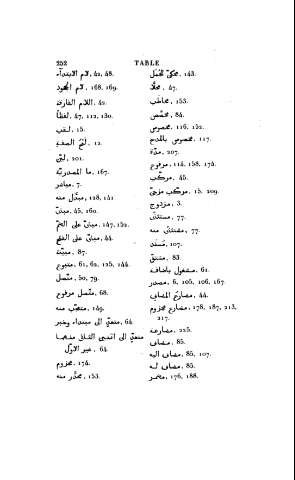 252 TABLE
لام الابتداء, 42, 48.
لام الجحود, 168, 169.
اللام الفارقة, 42.
لفظًا, 47, 112, 130.
لقب, 15.
12.
لكن, 201.
ما المصدريّة, 167.
مباشر, 7.
مبدل منه, 128, 141.
مبنيّ, 45, 160.
مبنيّ على الضمّ, 147, 152.
مبنيّ على الفتح, 44.
87.
متبوع, 61, 62, 125, 144.
متّصل, 50, 79.
متّصل مرفوع, 68.
متعجّب منه, 149.
متعدّي الى مبتداء وخبر, 64.
متعدّي الى اثنين الثاني منهما غير الاوّل, 64.
مجزوم, 174.
محذّر منه, 153.
143.
محلّا, 47.
مخاطب, 153.
مخصّص, 84.
مخصوص, 116, 152.
مخصوص بالمدح, 117.
مدّة, 207.
مرفوع, 114, 158, 174.
مركّب, 45.
مركّب مزجيّ, 15, 209.
مزدوج, 3.
مستثنى, 77.
مستثنى منه, 77.
مسند, 107.
مشتقّ, 83.
مشغول باضافة, 61.
مصدر, 6, 105, 106, 167.
44.
مضارع مجزوم, 178, 187, 213,
217.
مضارعة, 225.
مضاف, 85.
مضاف اليه, 85, 107.
مضاف له, 85.
مضمر, 176, 188.